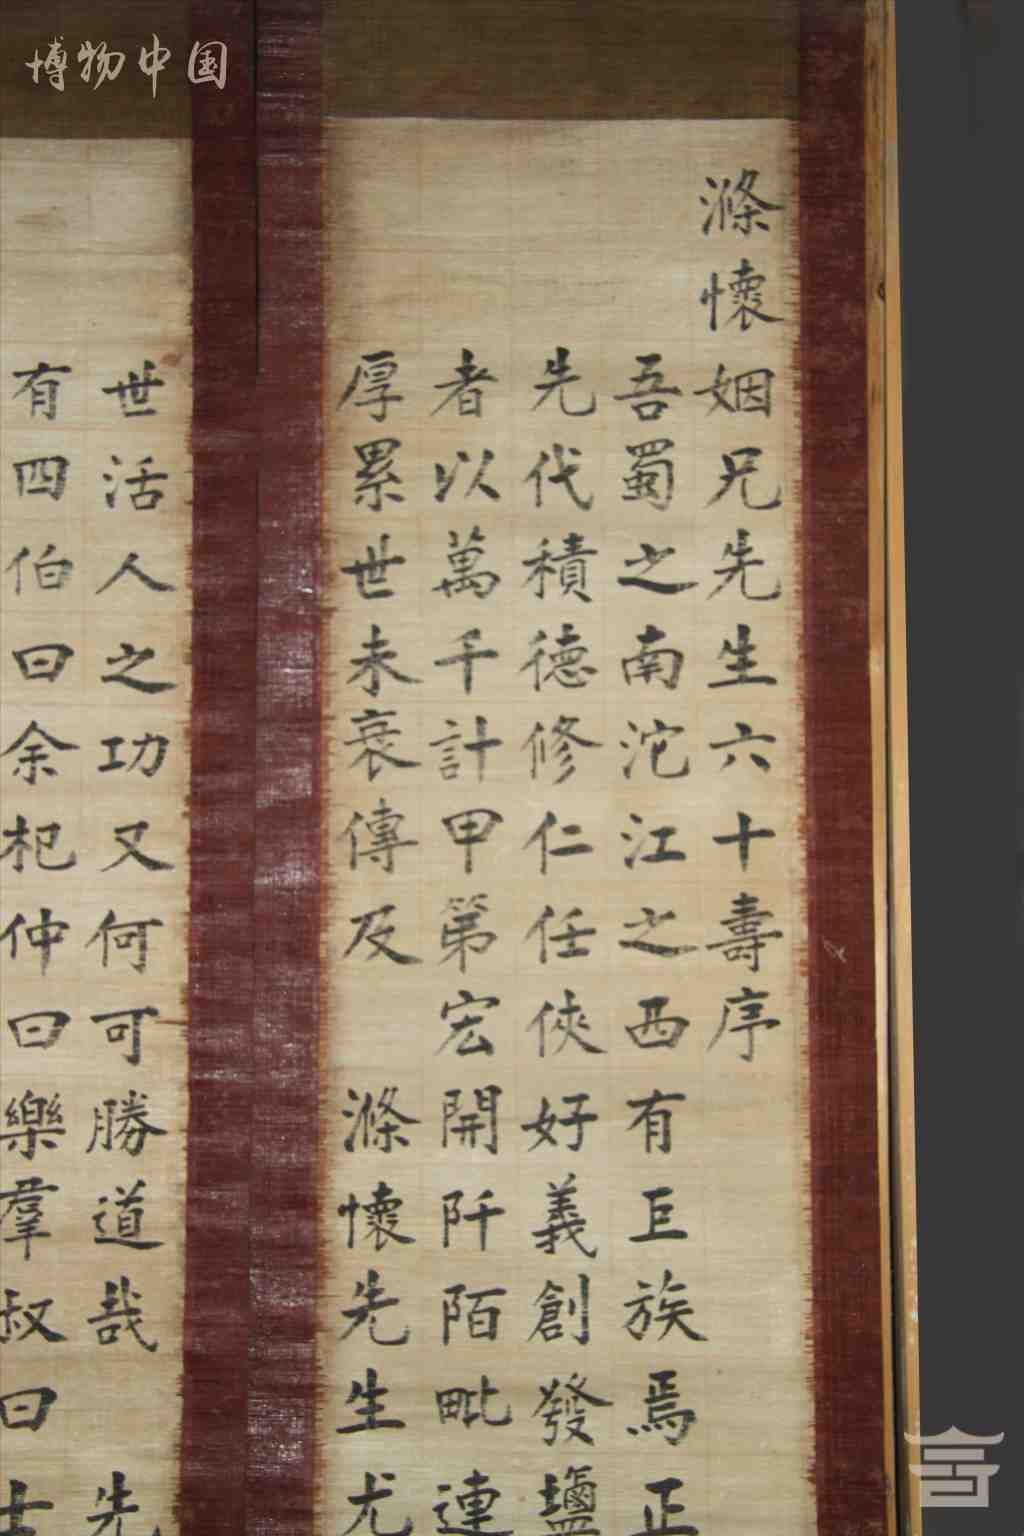 博物中国
滌懷姻兄先生六十壽序
吾蜀之南沱江之西有巨族焉正
先代積德修仁任俠好義創發鹽
者以萬千計甲第宏開阡陌毗連
厚累世未衰傳及 滌懷先生尤
世活人之功又何可勝道哉 先
有四伯曰余杞仲曰樂羣叔曰士